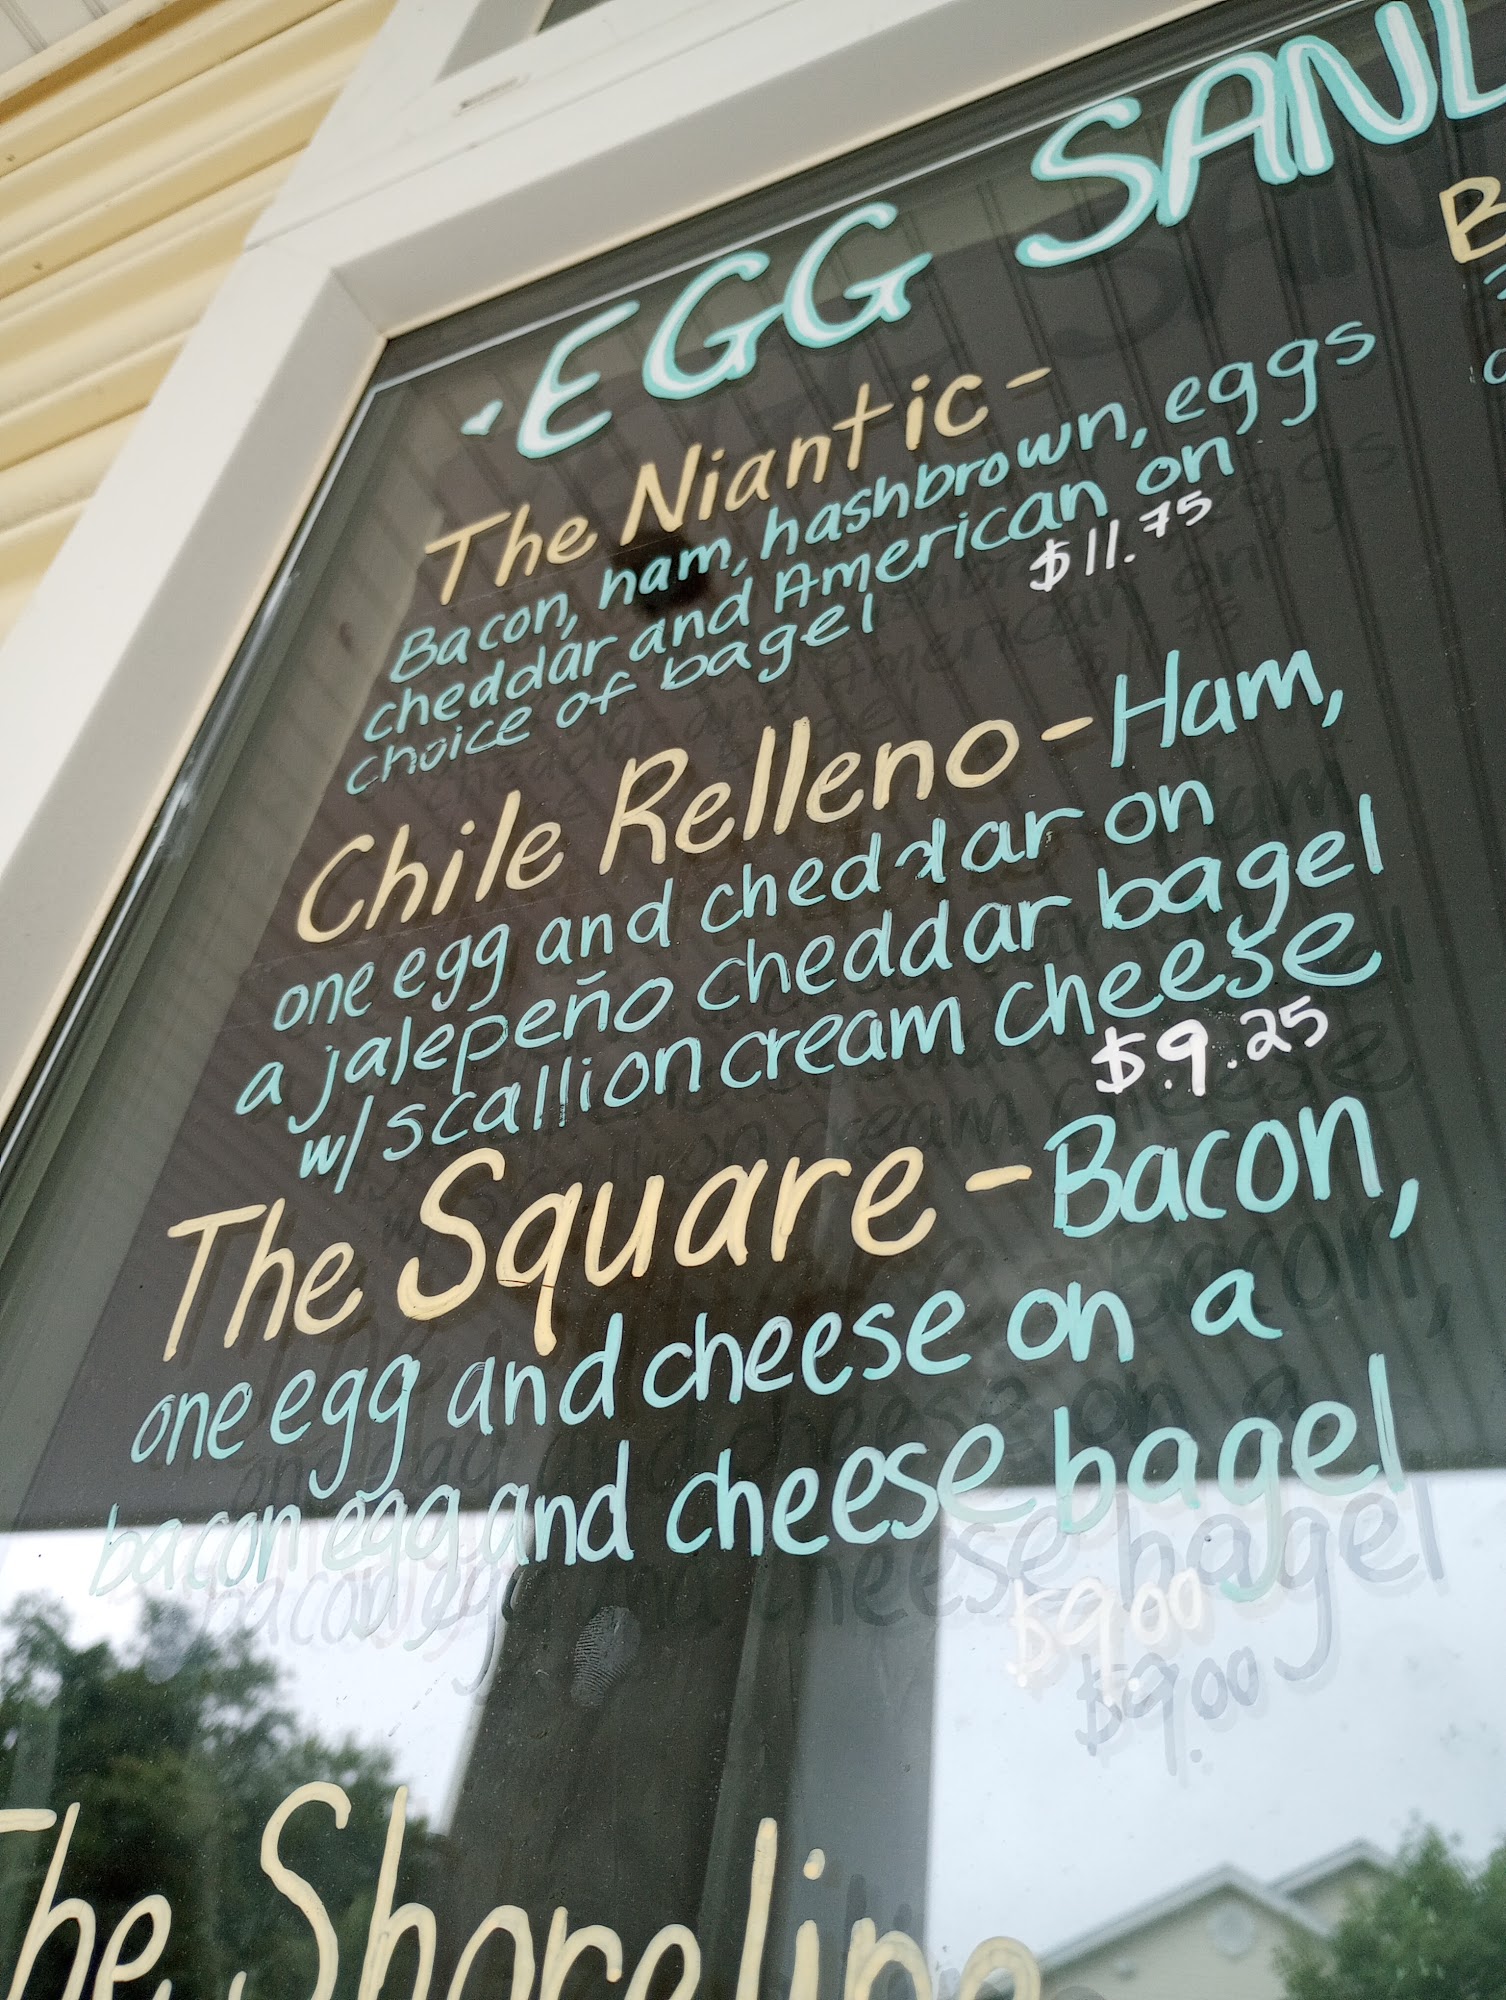 EGG SAND
The Niantic -
Bacon, ham, hashbrown, eggs
cheddar and American on
choice of bagel
$11.75
Chile Relleno - Ham,
one egg and cheddar on
a jalepeño cheddar bagel
w/ scallion cream cheese
$9.25
The Square - Bacon,
one egg and cheese on a
bacon egg and cheese bagel
$9.00
The Shoreline